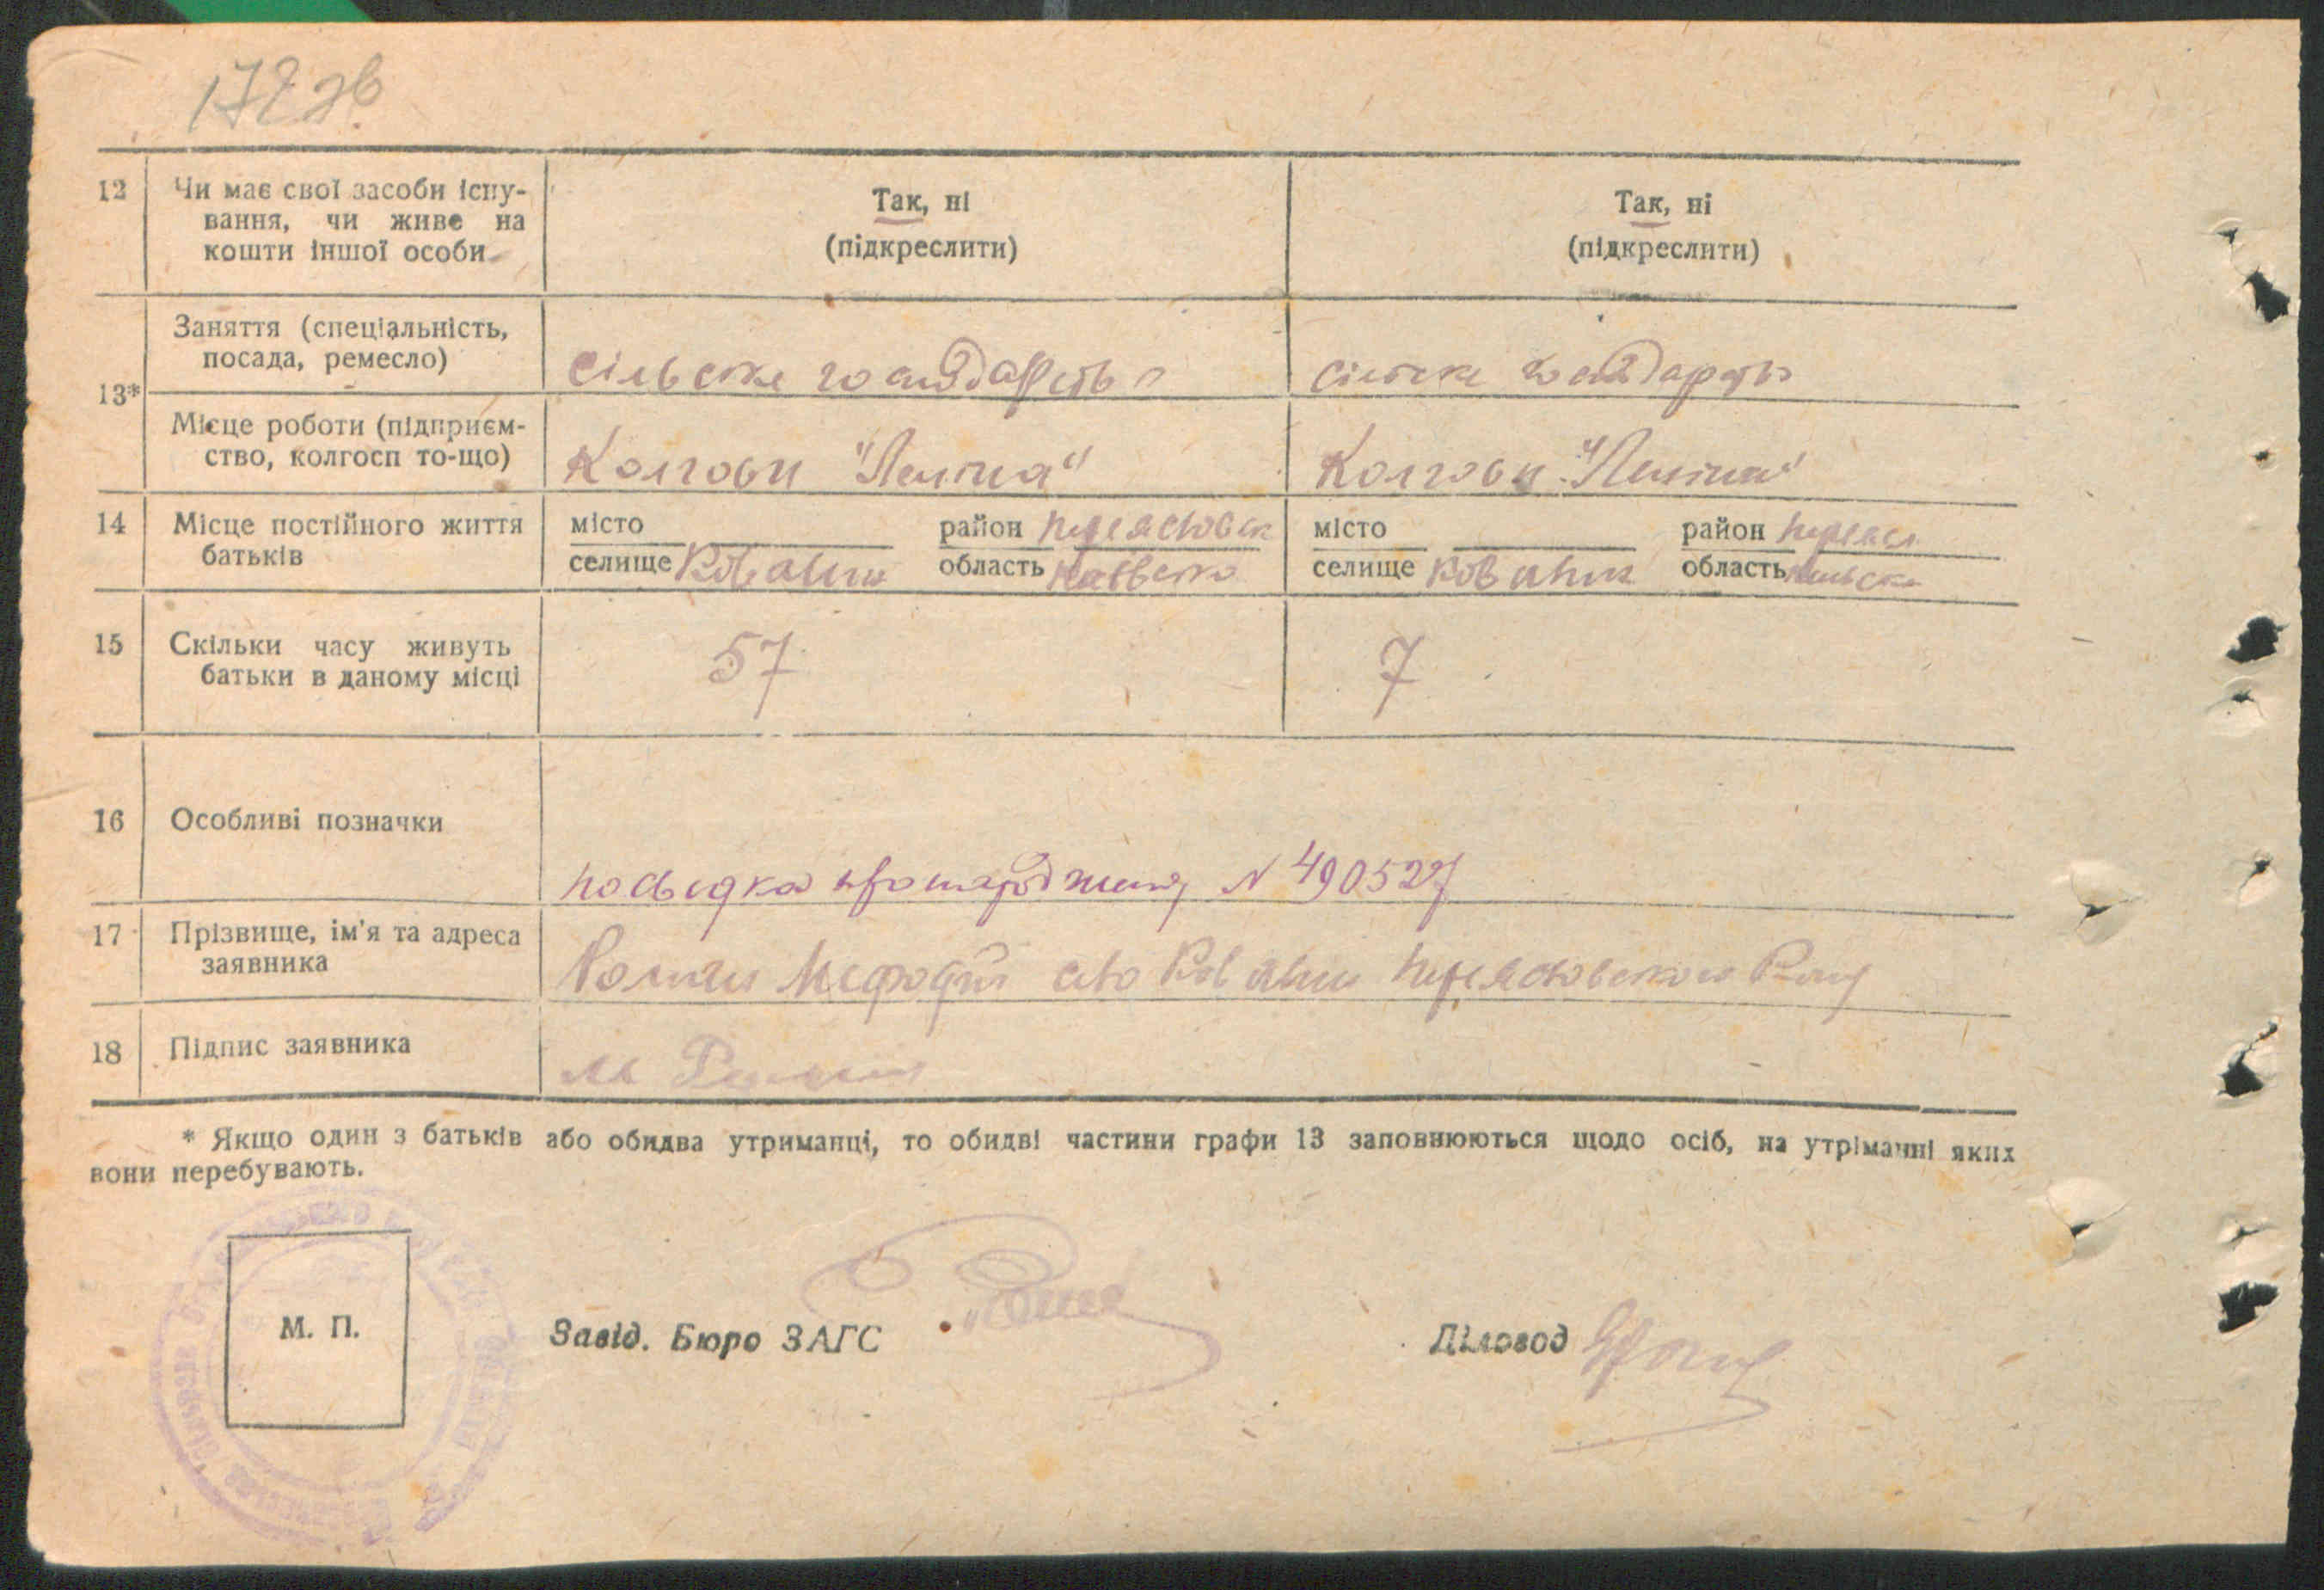 172 зв
12 Чи має свої засоби існу-
вання, чи живе на
кошти іншої особи
Так, ні
(підкреслити)
Так, ні
(підкреслити)
13* Заняття (спеціальність,
посада, ремесло)
сільске господарство
сільске господарство
Місце роботи (підприєм-
ство, колгосп то-що)
Колгосп "Леніна"
Колгосп "Леніна"
14 Місце постійного життя
батьків
місто район Переяславск
селище Ковалин область Київсько
місто район Переясл
селище Ковалин область
15 Скільки часу живуть
батьки в даному місці
57
7
16 Особливі позначки
посвідка про народження N 490527
17 Прізвище, ім'я та адреса
заявника
Мефодій село Ковалин Переяславського Рону
18 Підпис заявника
М
* Якщо один з батьків або обидва утриманці, то обидві частини графи 13 заповнюються щодо осіб, на утріманні яких
вони перебувають.
М. П.
Завід. Бюро ЗАГС
Діловод